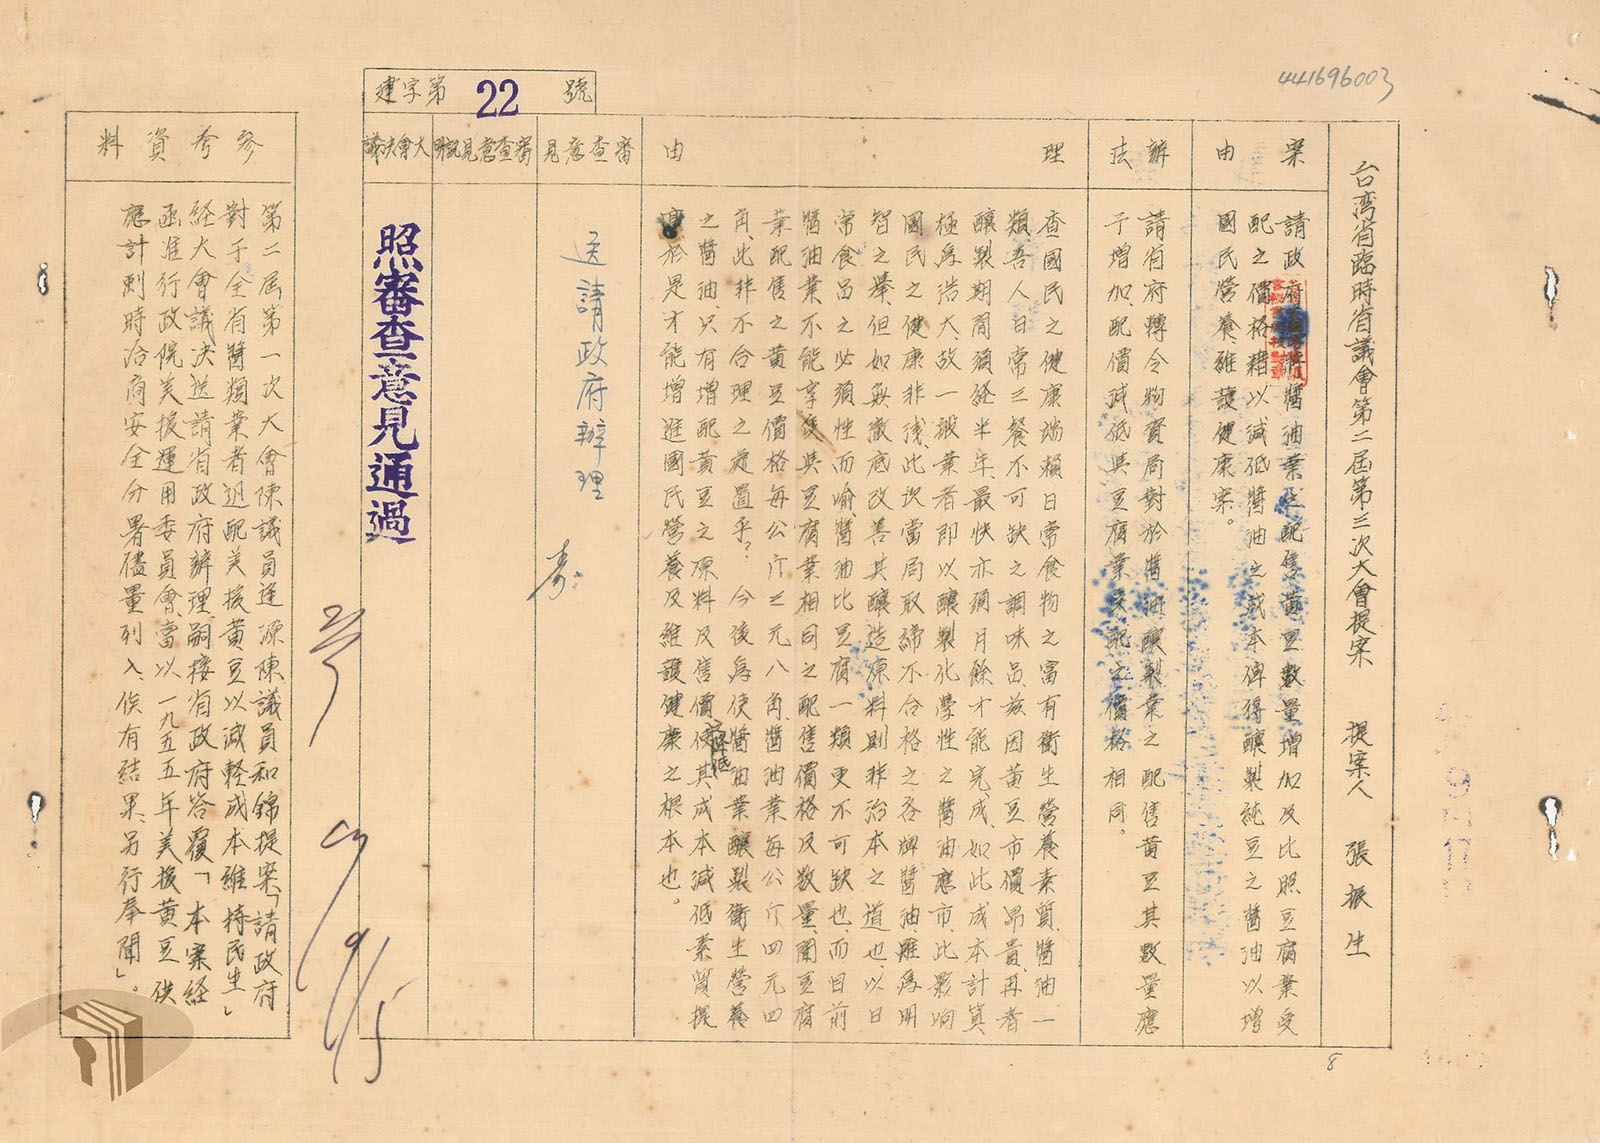 441696003
建字第 22 號
台湾省臨時省議會第二屆第三次大會提案　提案人　張振生
案由
請政府　　將醬油業之配售黃豆數量增加及比照豆腐業受
配之價格藉以減低醬油之成本俾得釀製純豆之醬油以增
國民營養、維護健康案。
辦法
請省府轉令物資局對於醬油釀製業之配售黃豆其數量應
予增加、配價減低與豆腐業受配之價格相同。
理由
查國民之健康端賴日常食物之富有衛生營養素質、醬油一
類、吾人日常三餐不可缺之調味品、茲因黃豆市價昂貴、再者
釀製期間須経半年、最快亦須月餘才能完成、如此成本計算
極為浩大、故一般業者即以釀製化學性之醬油應市、此影响
國民之健康非淺、此次當局取締不合格之各牌醬油、雖為明
智之舉、但如無澈底改善其釀造原料則非治本之道也、以日
常食品之必須性而喻、醬油比豆腐一類更不可缺也、而目前
醬油業不能享受與豆腐業相同之配售價格及数量、聞豆腐
業配售之黃豆價格每公斤三元八角、醬油業每公斤四元四
角、此非不合理之處置乎？今後為使醬油業釀製衛生營養
之醬油、只有增配黃豆之原料及售價之降低使其成本減低素質提
高於是才能增進國民營養及維護健康之根本也。
審查意見
送請政府辦理
審查意見說明
大會決議
照審查意見通過
9/15
參考資料
第二屆第一次大會陳議員逢源陳議員和錦提案「請政府
對于全省醬類業者迅配美援黃豆以減軽成本維持民生」
経大會議決送請省政府辦理嗣接省政府答覆「本案経
函准行政院美援運用委員會當以一九五五年美援黃豆供
應計劃時洽商安全分署儘量列入、俟有結果、另行奉聞」。
8